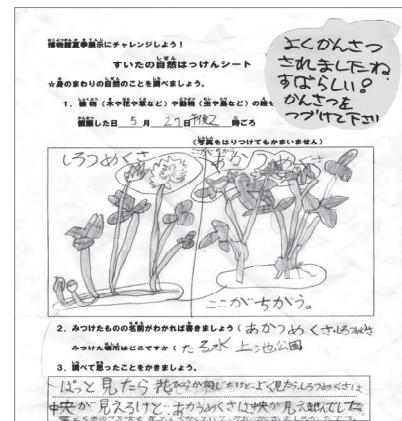 博物館夏季展示にチャレンジしよう！
すいたの自然はっけんシート
☆身のまわりの自然のことを調べましょう。
よくかんさつ
されましたね
すばらしい！
かんさつを
つづけて下さい
1．植物（木や花や草など）や動物（虫や鳥など）の絵を
観察した日 5月27日 午後2時ごろ
（写真をはりつけてもかまいません）
しろつめくさ
あかつめくさ
ここがちがう。
2．みつけたものの名前がわかれば書きましょう（あかつめくさしろつめくさ
みつけた場所はどこですか（たる水上池公園
3．調べて思ったことをかきましょう。
ぱっと見たら花びらが同じだけどよく見たらしろつめくさは
中央が見えるけど、あかつめくさは中央が見えませんでした。